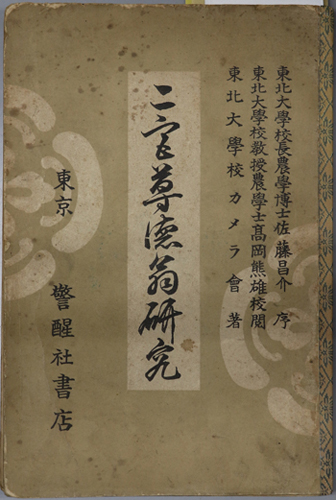 東北大學校長農學博士佐藤昌介 序
東北大學校教授農學士髙岡熊雄校閲
東北大學校カメラ會 著
二宮尊徳翁研究
東京 警醒社書店